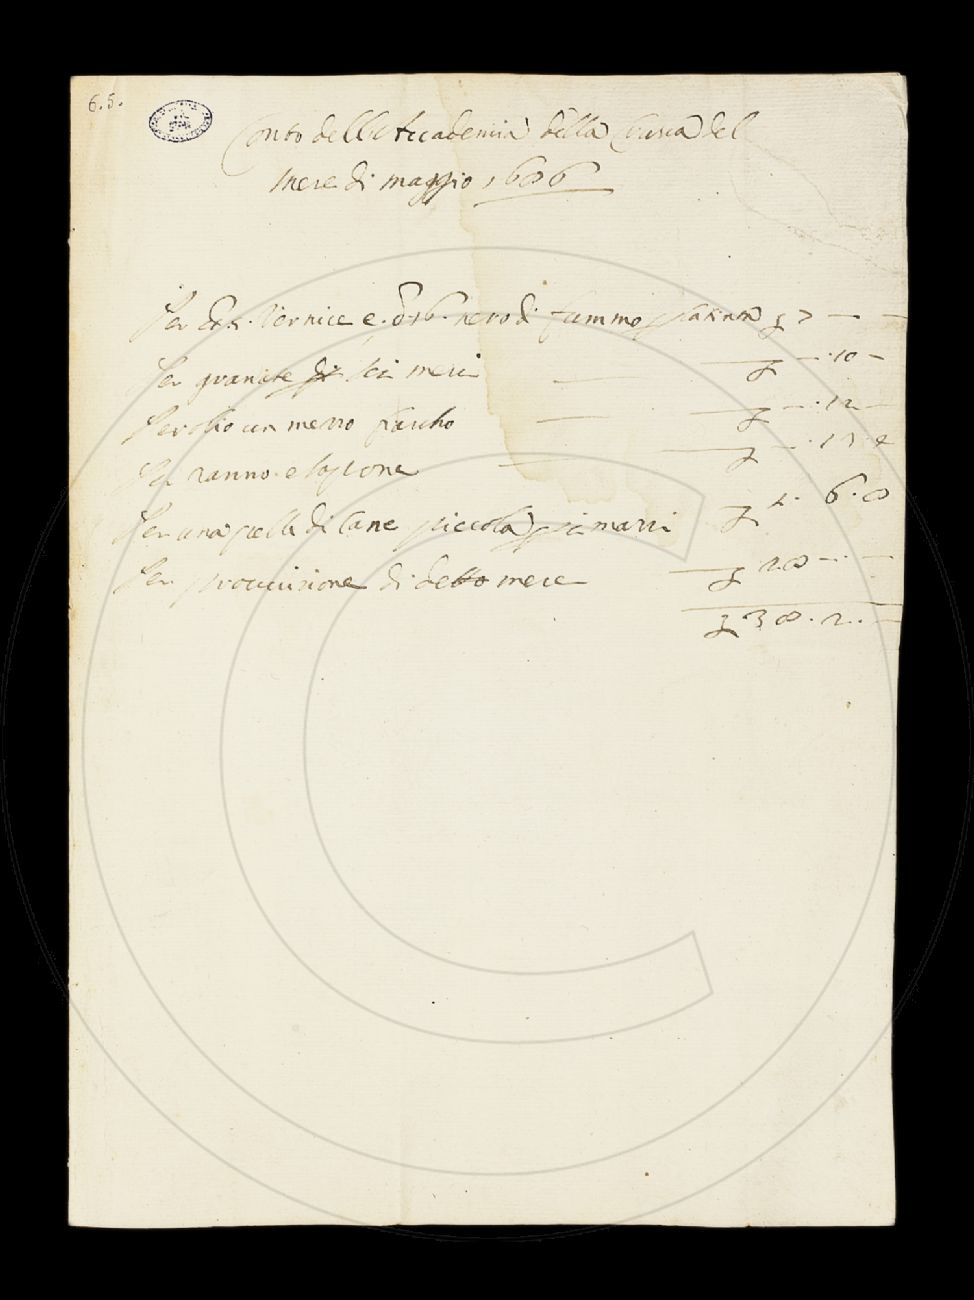 6.5.
Conto dell'Accademia della Crusca del
Mese di maggio 1686
Per vernice e nero di fummo £ 7 — —
Per granate di sei mesi — £ — . 10 —
Per olio un mezzo fiascho — £ — . 12 —
Per ranno e sapone — £ — . 13 . 4
Per una pelle di Cane piccola £ 1. 6. 8
Per provvisione di detto mese — £ 28 — . —
£ 38. 2. —